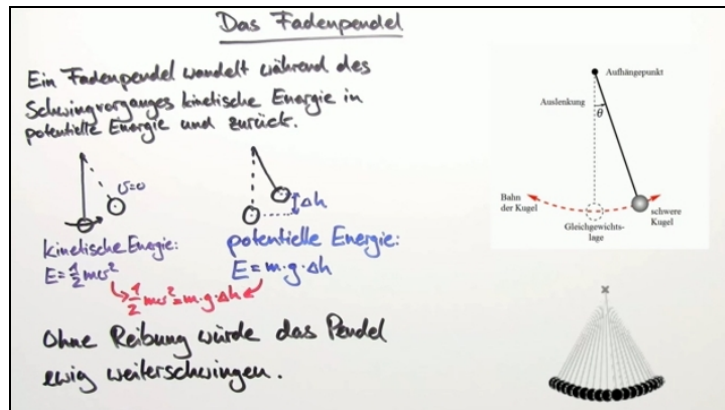 Das Fadenpendel
Ein Fadenpendel wandelt während des
Schwingvorganges kinetische Energie in
potentielle Energie und zurück.
v=0
Δh
kinetische Energie:
E=1/2mv²
potentielle Energie:
E=m·g·Δh
1/2mv²=m·g·Δh
Ohne Reibung würde das Pendel
ewig weiterschwingen.
Aufhängepunkt
Auslenkung
θ
Bahn
der Kugel
Gleichgewichts-
lage
schwere
Kugel